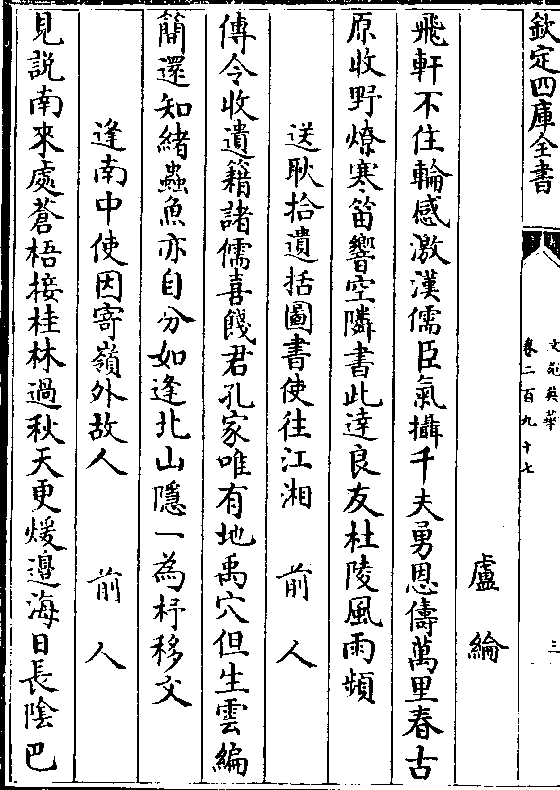 欽定四庫全書
文苑英華
卷二百九十七
三
盧綸
飛軒不住輪感激漢儒臣氣攝千夫勇恩儔萬里春古
原收野燎寒笛響空隣書此達良友杜陵風雨頻
送耿拾遺括圖書使往江湘 前人
傳令收遺籍諸儒喜餞君孔家唯有地禹穴但生雲編
簡還知緒蟲魚亦自分如逢北山隱一為杼移文
逢南中使因寄嶺外故人 前人
見説南來處蒼梧接桂林過秋天更煖邉海日長陰巴